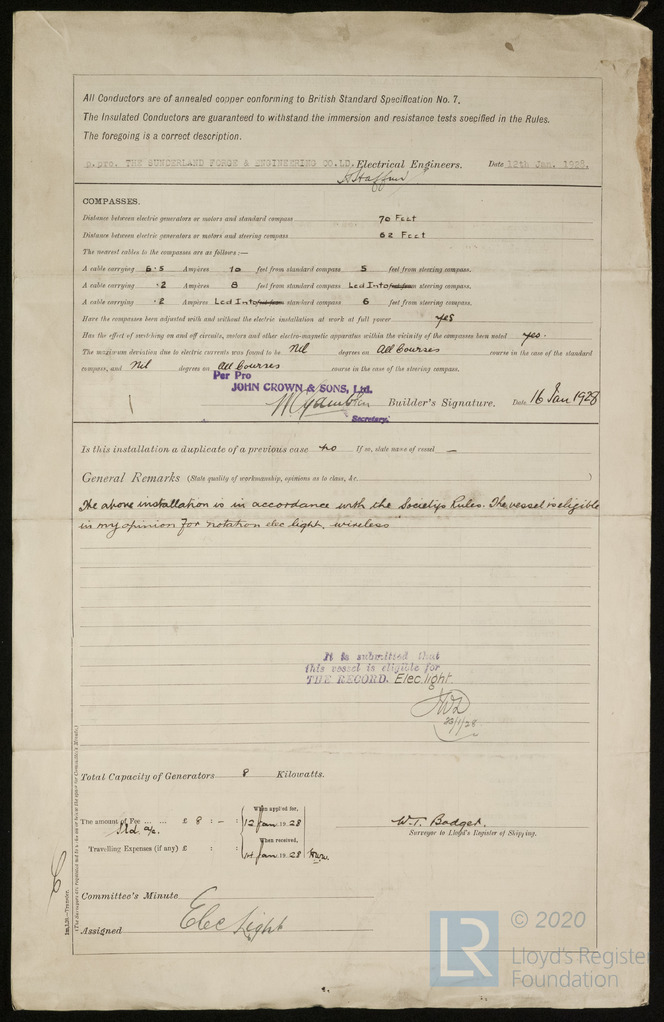 All Conductors are of annealed copper conforming to British Standard Specification No. 7.
The Insulated Conductors are guaranteed to withstand the immersion and resistance tests specified in the Rules.
The foregoing is a correct description.
p.pro. THE SUNDERLAND FORGE & ENGINEERING CO.LD. Electrical Engineers. Date 12th Jan. 1928.
COMPASSES.
Distance between electric generators or motors and standard compass 70 Feet
Distance between electric generators or motors and steering compass 62 Feet
The nearest cables to the compasses are as follows:—
A cable carrying 6.5 Ampères 10 feet from standard compass 5 feet from steering compass.
A cable carrying .2 Ampères 8 feet from standard compass Led Into feet from steering compass.
A cable carrying .2 Ampères Led Into feet from standard compass 6 feet from steering compass.
Have the compasses been adjusted with and without the electric installation at work at full power yes
Has the effect of switching on and off circuits, motors and other electro-magnetic apparatus within the vicinity of the compasses been noted yes.
The maximum deviation due to electric currents was found to be Nil degrees on All Courses course in the case of the standard
compass, and Nil degrees on All Courses course in the case of the steering compass.
Per Pro
JOHN CROWN & SONS, Ltd.
Builder's Signature. Date 16 Jan 1928
Secretary.
Is this installation a duplicate of a previous case no If so, state name of vessel —
General Remarks (State quality of workmanship, opinions as to class, &c. )
The above installation is in accordance with the Society's Rules. The vessel is eligible
in my opinion for notation elec light, wireless
It is submitted that
this vessel is eligible for
THE RECORD. Elec. light.
23/1/28
Total Capacity of Generators 8 Kilowatts.
The amount of Fee ... ... £ 8 : - : When applied for, 12 Jan 1928
Std. a/c.
Travelling Expenses (if any) £ : : When received, 14 Jan 1928
W.T. Badger.
Surveyor to Lloyd's Register of Shipping.
Committee's Minute
Assigned Elec Light
Im.1.26.—Transfer.
(The Surveyors are requested not to write on or below the space for Committee's Minute.)
LR © 2020
Lloyd's Register
Foundation